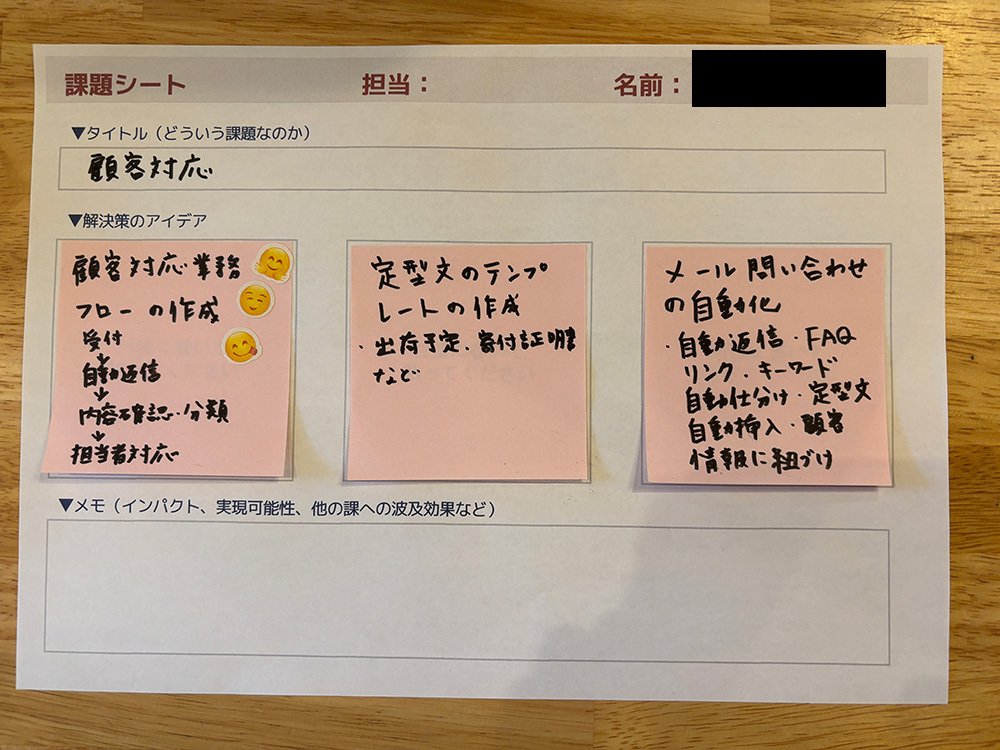 課題シート 担当： 名前：
▼タイトル（どういう課題なのか）
顧客対応
▼解決策のアイデア
顧客対応業務
フローの作成
受付
↓
自動返信
↓
内容確認・分類
↓
担当者対応
定型文のテンプ
レートの作成
・出荷予定、寄付証明書
など
メール問い合わせ
の自動化
・自動返信・FAQ
リンク・キーワード
自動仕分け・定型文
自動挿入・顧客
情報に紐づけ
▼メモ（インパクト、実現可能性、他の課への波及効果など）